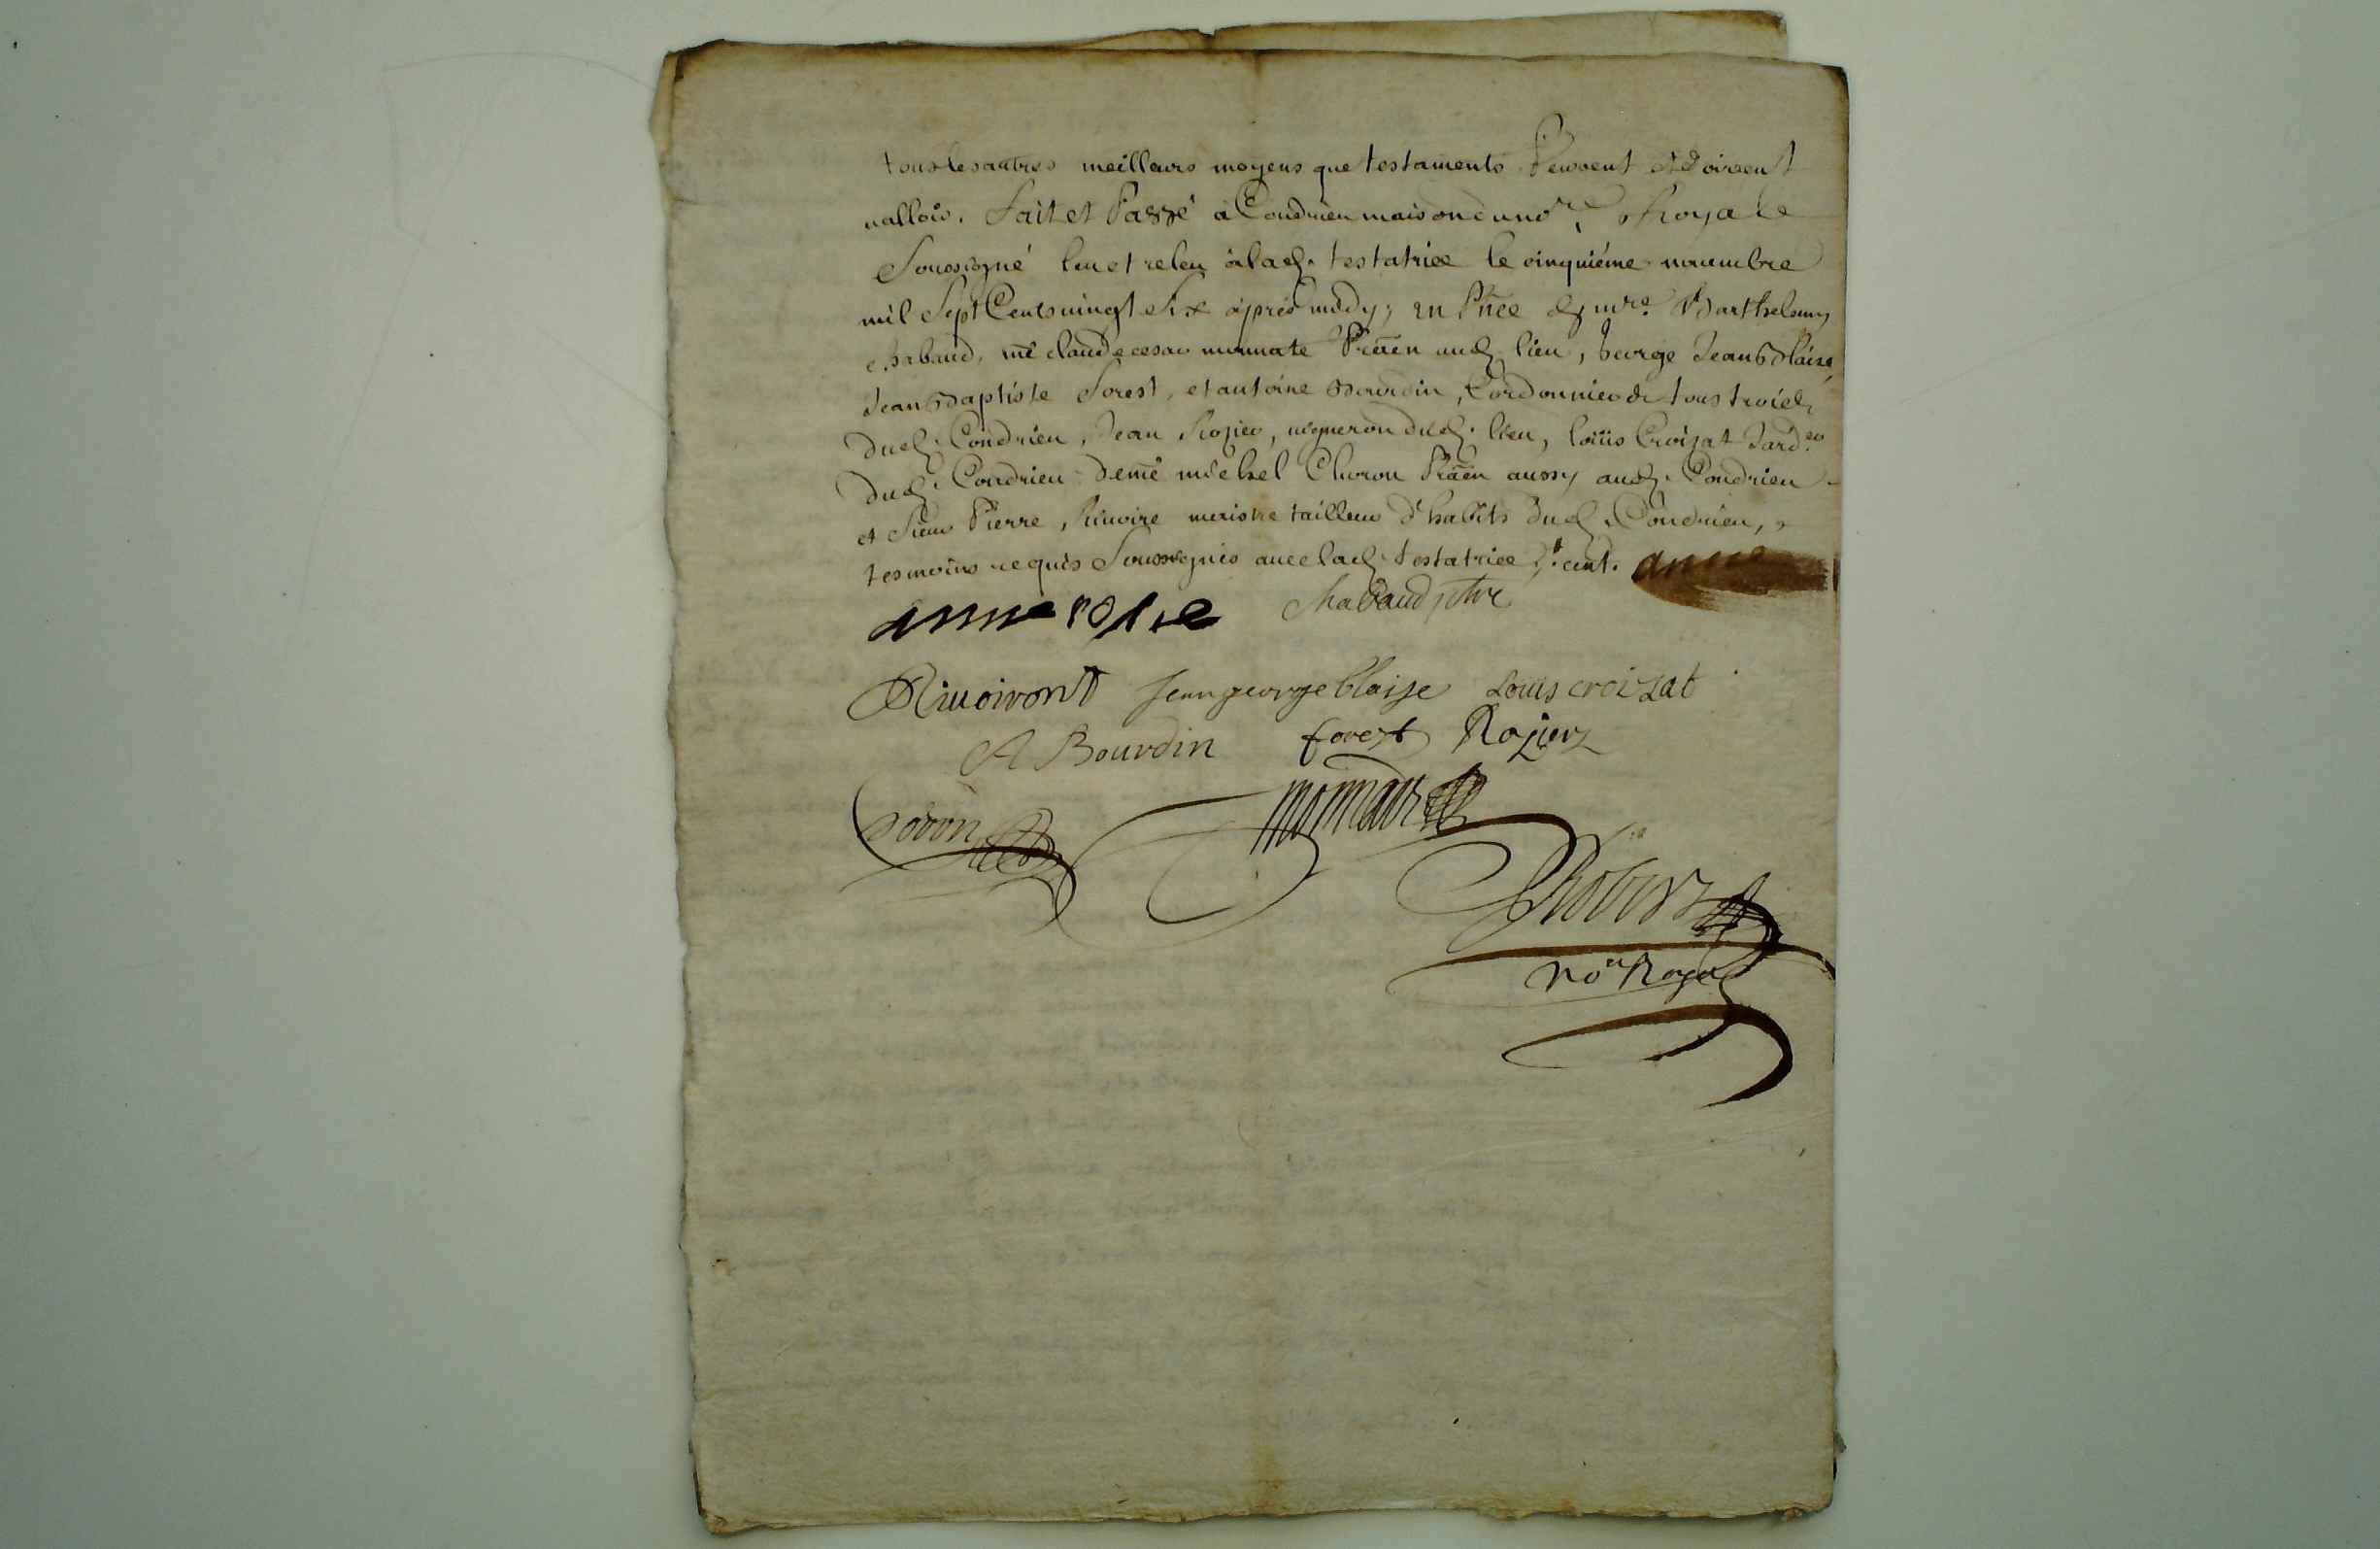 tous les autres meilleurs moyens que testaments Peuvent et doivent
valloir. Fait et Passé à Condrieu maison du no.re Royale
Soussigné leu et releu à lad. testatrice le cinquiéme nouembre
mil Sept Cents vingt Six après midy; en Pñce de m.re Barthelemy
chabaud, me claude cesar monnate Pratien aud. lieu, George Jean Blaise,
Jean Baptiste Forest, et antoine Bourdin, Cordonnier de tous trois
dud. Condrieu, Jean Rozier, vigneron dud. lieu, loüis Croizat Jard.er
dud. Condrieu me michel Pratien aussy aud. Condrieu
et Sieur Pierre, Rivoire maistre tailleur d'habits dud. Condrieu,
tesmoins requis Soussignés avec lad. testatrice anne
anne Chabaud ptre
Rivoiront Jean george blaise Louis croizat
A Bourdin forest Rozier
monnate
Robert
No.re Royal